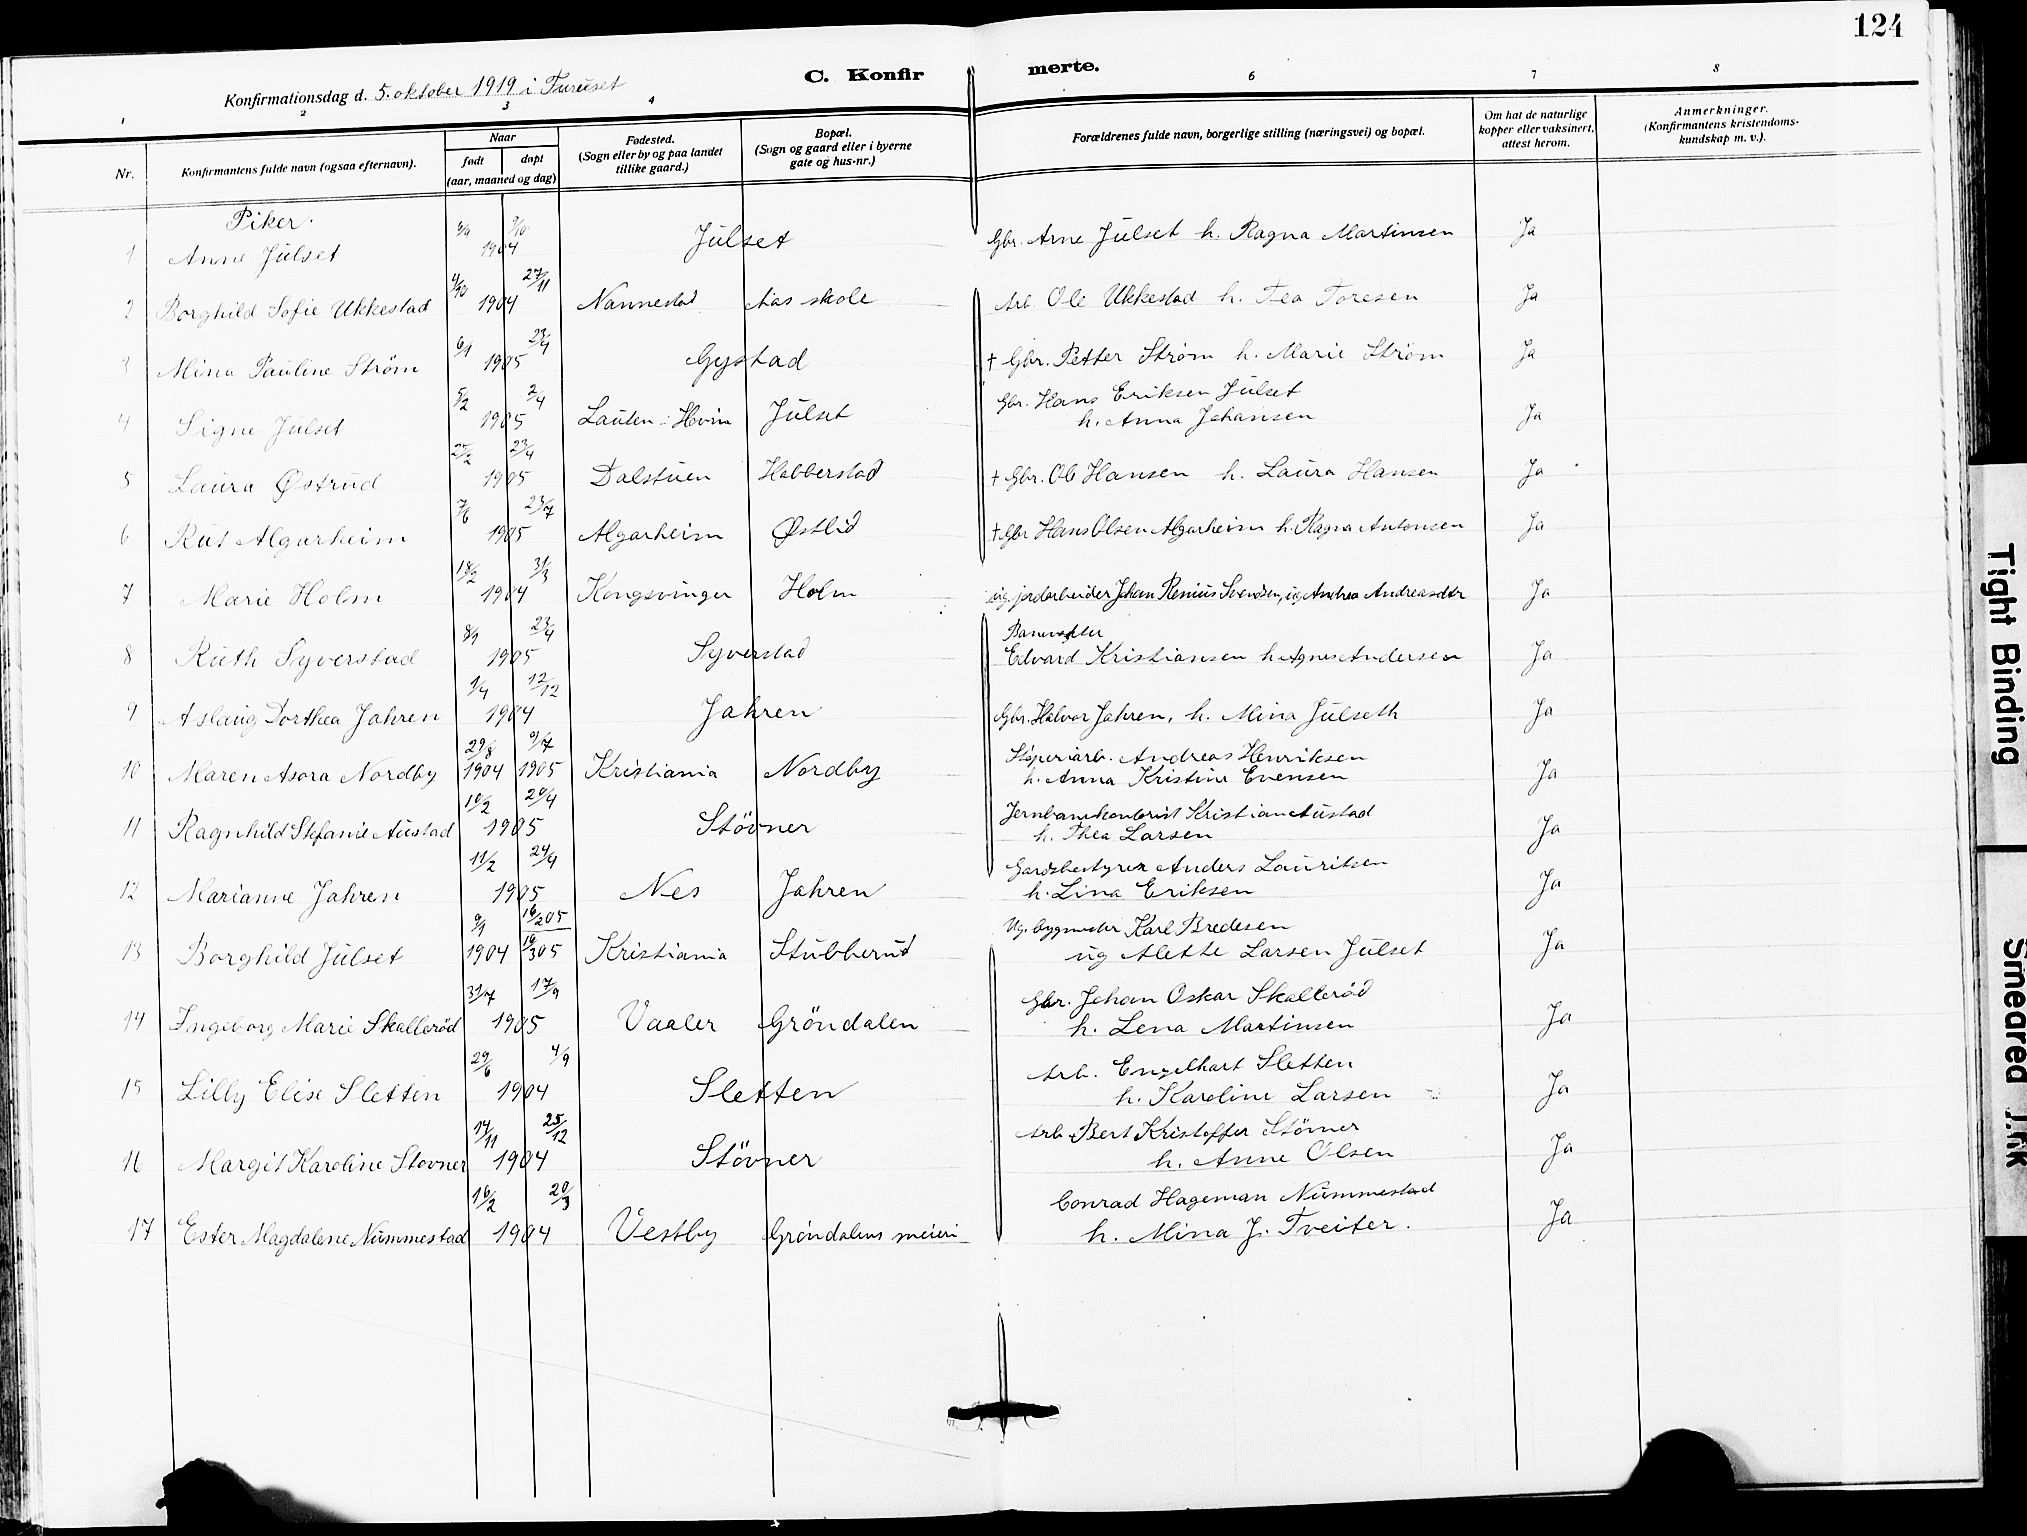 124
C. Konfirmerte.
Konfirmationsdag d. 5. oktober 1919 i Furuset
1 2 3 4 6 7 8
Nr.
Konfirmantens fulde navn (ogsaa efternavn).
Naar
født døpt
(aar, maaned og dag)
Fødested.
(Sogn eller by og paa landet
tillike gaard.)
Bopæl.
(Sogn og gaard eller i byerne
gate og hus-nr.)
Forældrenes fulde navn, borgerlige stilling (næringsvei) og bopæl.
Om hat de naturlige
kopper eller vaksinert,
attest herom.
Anmerkninger.
(Konfirmantens kristendoms-
kundskap m. v.).
Piker.
1 Anne Julset 1904 Julset Gbr. Arne Julset h. Ragna Martinsen Ja
2 Borghild Sofie Ukkestad 4/10 27/11 1904 Nannestad Aas skole Arb. Ole Ukkestad h. Tea Toresen Ja
3 Mina Pauline Ström 6/1 23/4 1905 Gystad † Gbr. Petter Strøm h. Marie Strøm Ja
4 Signe Julset 5/2 2/4 1905 Lauten: Hvin Julset Gbr. Hans Eriksen Julset
h. Anna Johansen Ja
5 Laura Østrud 25/2 23/4 1905 Dalstuen Habberstad † Gbr. Ole Hansen h. Laura Hansen Ja
6 Rut Algarheim 7/6 23/7 1905 Algarheim Østlid † Gbr Hans Olsen Algarheim h. Ragna Antonsen Ja
7 Marie Holm 18/2 31/3 1904 Kongsvinger Holm ug. jordarbeider Johan Renius Svendsen, ug Andrea Andreasdtr Ja
8 Ruth Syverstad 23/4 1905 Syverstad Banevokter
Edvard Kristiansen h. Agnes Andersen Ja
9 Aslaug Dorthea Jahren 12/12 1904 Jahren Gbr. Halvor Jahren, h. Mina Julseth Ja
10 Maren Asora Nordby 29/8 1904 9/7 1905 Kristiania Nordby Støperiarb. Andreas Henriksen
h. Anna Kristine Evensen Ja
11 Ragnhild Stefanie Austad 10/2 20/4 1905 Stövner Jernbanekontorist Kristian Austad
h. Thea Larsen Ja
12 Marianne Jahren 11/2 24/4 1905 Nes Jahren Gardsbestyrer Anders Lauritsen
h. Lina Eriksen Ja
13 Borghild Julset 1904 16/2 05 19/3 05 Kristiania Stubberud Ug. bygmester Karl Bredesen
ug Alette Larsen Julset Ja
14 Ingeborg Marie Skalleröd 31/7 17/9 1905 Vaaler Gröndalen Gbr. Johan Oskar Skalleröd
h. Lena Martinsen Ja
15 Lilly Elise Sletten 29/6 4/9 1904 Sletten Arb. Engelhart Sletten
h. Karoline Larsen Ja
16 Margit Karoline Stovner 14/11 25/12 1904 Stövner Arb. Bert Kristoffer Stövner
h. Anne Olsen Ja
17 Ester Magdalene Nummestad 16/2 20/3 1904 Vestby Gröndalens meieri Conrad Hageman Nummestad
h. Mina J. Tveiter. Ja
Tight Binding
Smeared Ink